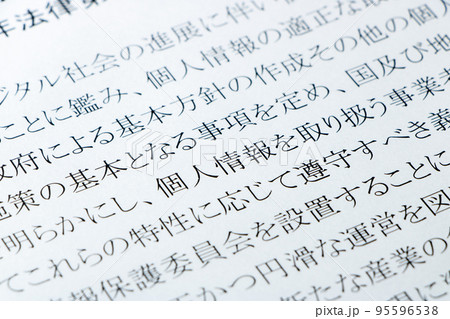 年法律第
ジタル社会の進展に伴い個
ことに鑑み、個人情報の適正な取
政府による基本方針の作成その他の個人
施策の基本となる事項を定め、国及び地
明らかにし、個人情報を取り扱う事業者
てこれらの特性に応じて遵守すべき義
報保護委員会を設置することに
正かつ円滑な運営を図
新たな産業の
95596538